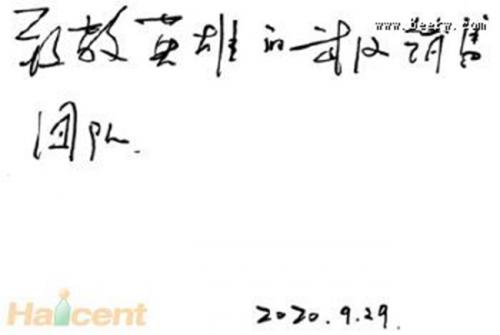 www.beerw.com
致敬英雄的武汉销售
团队.
Haicent
2020.9.29.